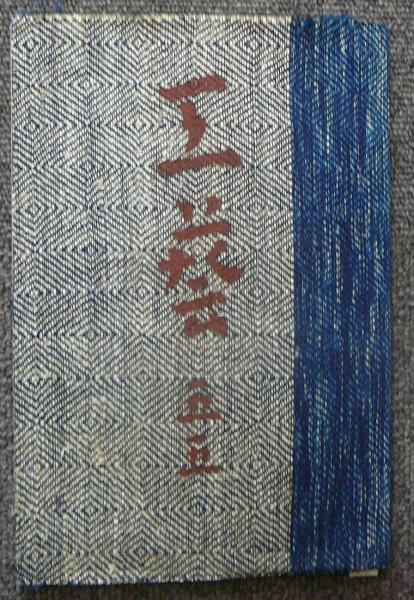 工藝 五五